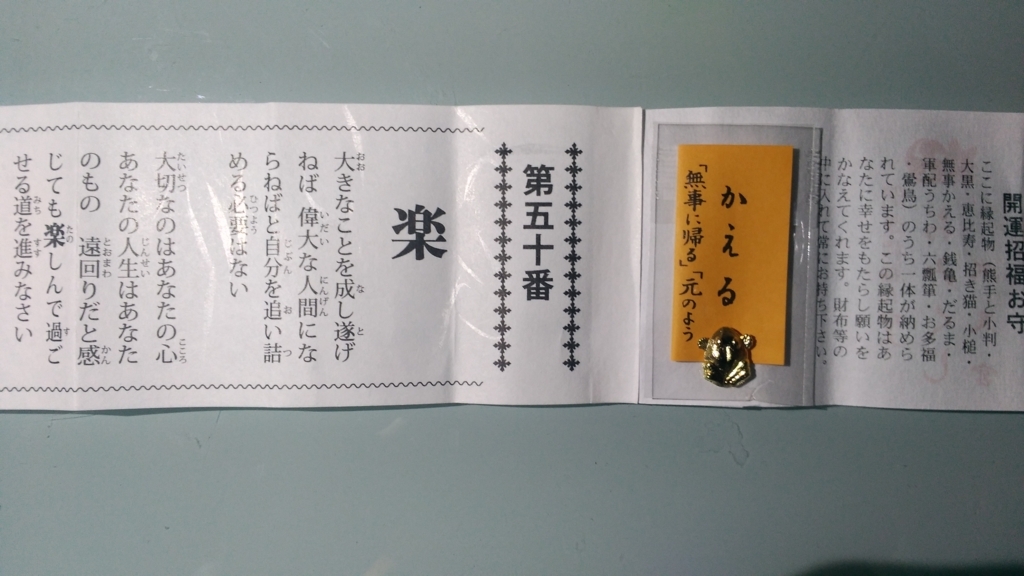 開運招福お守
ここに縁起物(熊手と小判・
大黒・恵比寿・招き猫・小槌・
無事かえる・銭亀・だるま・
軍配うちわ・六瓢箪・お多福
・鷽鳥)のうち一体が納めら
れています。この縁起物はあ
なたに幸せをもたらし願いを
かなえてくれます。財布等の
中に入れて常にお持ち下さい。
かえる
「無事に帰る」「元のよう
第五十番
楽
大きなことを成し遂げ
ねば 偉大な人間にな
らねばと自分を追い詰
める必要はない
大切なのはあなたの心
あなたの人生はあなた
のもの 遠回りだと感
じても楽しんで過ご
せる道を進みなさい